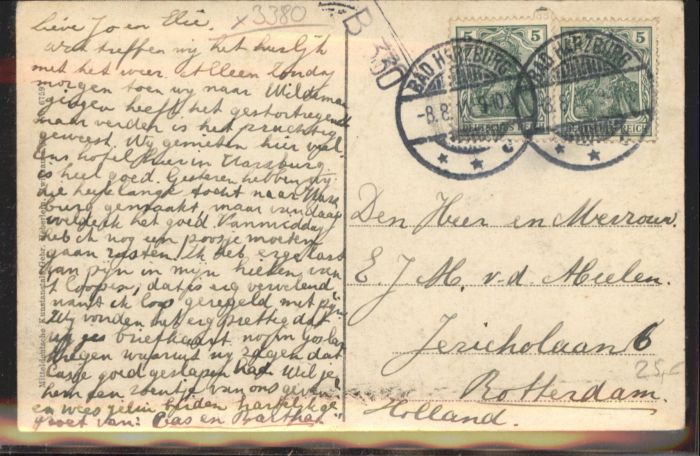 Lieve Jo en Elie.
x 3380
B 330
Wat treffen wij het heerlijk
met het weer. Alleen Zondag
morgen toen wij naar Wildeman
gingen heeft het gestortregend
maar verder is het prachtig
geweest. Wij genieten hier veel
Ons hotel hier in Harzburg
is heel goed. Gisteren hebben wij
die heele lange tocht naar Harz
burg gemaakt, maar vandaag
voelde ik het goed. Vanmiddag
heb ik nog een poosje moeten
gaan rusten. Ik heb erge last
van pijn in mijn hielen van
't loopen, dat is erg vervelend
want ik loop geregeld met pijn.
Wij vonden het erg prettig dat
wij jes briefkaart nog in Goslar
kregen waaruit wij zagen dat
goed geslapen had. Wil je
hem een zoentje van ons geven
en wees jelui beiden hartelijk ge
groet van: Cas en Bartha
Mitteldeutsche Kunstanstalt
5 5
DEUTSCHES REICH DEUTSCHES REICH
BAD HARZBURG BAD HARZBURG
Den Heer en Mevrouw
E J M. v.d Meulen.
Jericholaan 6
25,-
Rotterdam.
Holland.